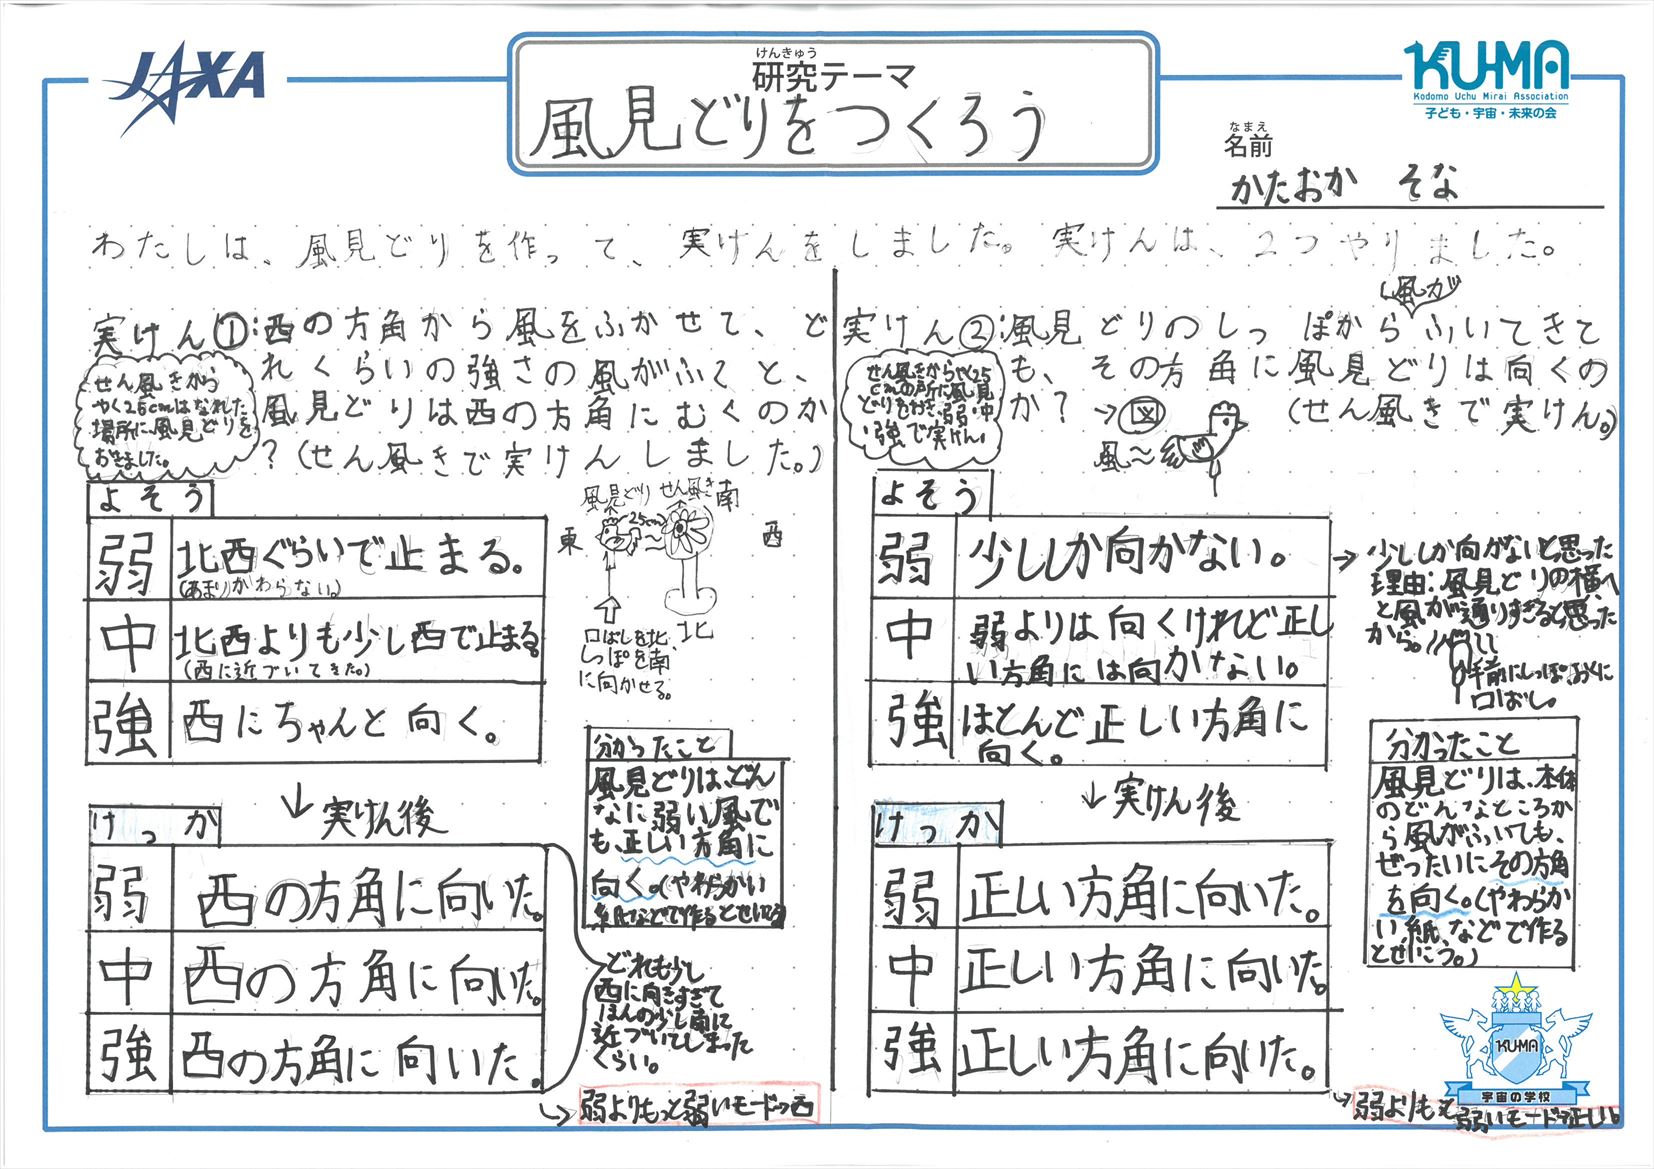 JAXA
けんきゅう
研究テーマ
風見どりをつくろう
KU-MA
Kodomo Uchu Mirai Association
子ども・宇宙・未来の会
なまえ
名前
かたおか そな
わたしは、風見どりを作って、実けんをしました。実けんは、2つやりました。
実けん①:西の方角から風をふかせて、ど
れくらいの強さの風がふくと、
風見どりは西の方角にむくのか
?(せん風きで実けんしました。)
せん風きから
やく25cmはなれた
場所に風見どりを
おきました。
よそう
弱 北西ぐらいで止まる。
(あまりかわらない。)
中 北西よりも少し西で止まる
(西に近づいてきた。)
強 西にちゃんと向く。
風見どり せん風き 南
25cm
東 西
北
口ばしを北、
しっぽを南
に向かせる。
↓実けん後
けっか
弱 西の方角に向いた。
中 西の方角に向いた。
強 西の方角に向いた。
分かったこと
風見どりは、どん
なに弱い風で
も、正しい方角に
向く。(やわらかい
紙などで作るとせいこう)
どれも少し
西に向きすぎて
ほんの少し南に
近づいてしまった
くらい。
弱よりもっと弱いモード→西
実けん②:風見どりのしっぽからふいてきて
(風が)
も、その方角に風見どりは向くの
か?→図 (せん風きで実けん。)
風〜
せん風きからやく25
cmの所に風見
どりをおき、弱・中
・強で実けん。
よそう
弱 少ししか向かない。
中 弱よりは向くけれど正し
い方角には向かない。
強 ほとんど正しい方角に
向く。
→少ししか向かないと思った
理由:風見どりの横へ
と風が通りすぎると思った
から。
手前にしっぽ、おくに
口ばし。
↓実けん後
けっか
弱 正しい方角に向いた。
中 正しい方角に向いた。
強 正しい方角に向いた。
分かったこと
風見どりは、本体
のどんなところか
ら風がふいても、
ぜったいにその方角
を向く。(やわらか
い紙などで作る
とせいこう。)
KU-MA
宇宙の学校
弱よりもっと弱いモード→正しい